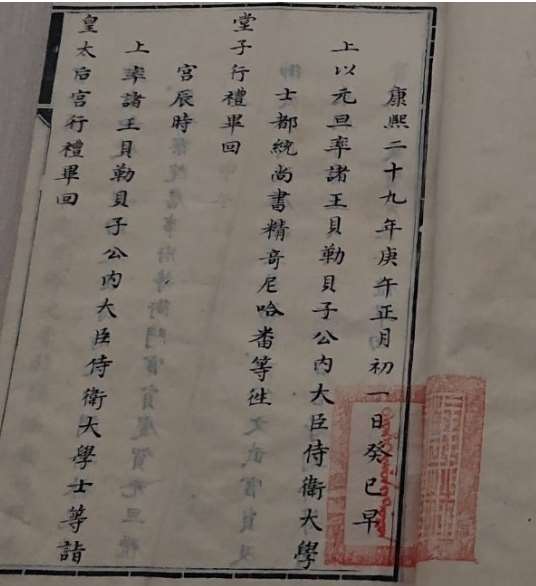 康熙二十九年庚午正月初一日癸巳早
上以元旦率諸王貝勒貝子公內大臣侍衛大學
士都統尚書精奇尼哈番等往
堂子行禮畢回
宮辰時
上率諸王貝勒貝子公內大臣侍衛大學士等詣
皇太后宮行禮畢回